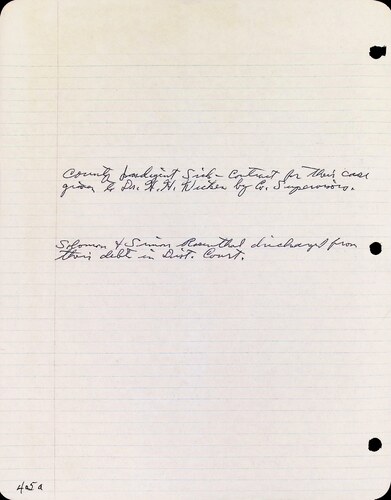 County Indigint Sick - Contract for their case
given to Dr. H. H. by Co. Supervisors.
Solomon & Simon Rosenthal discharged from
their debt in Dist. Court.
405a